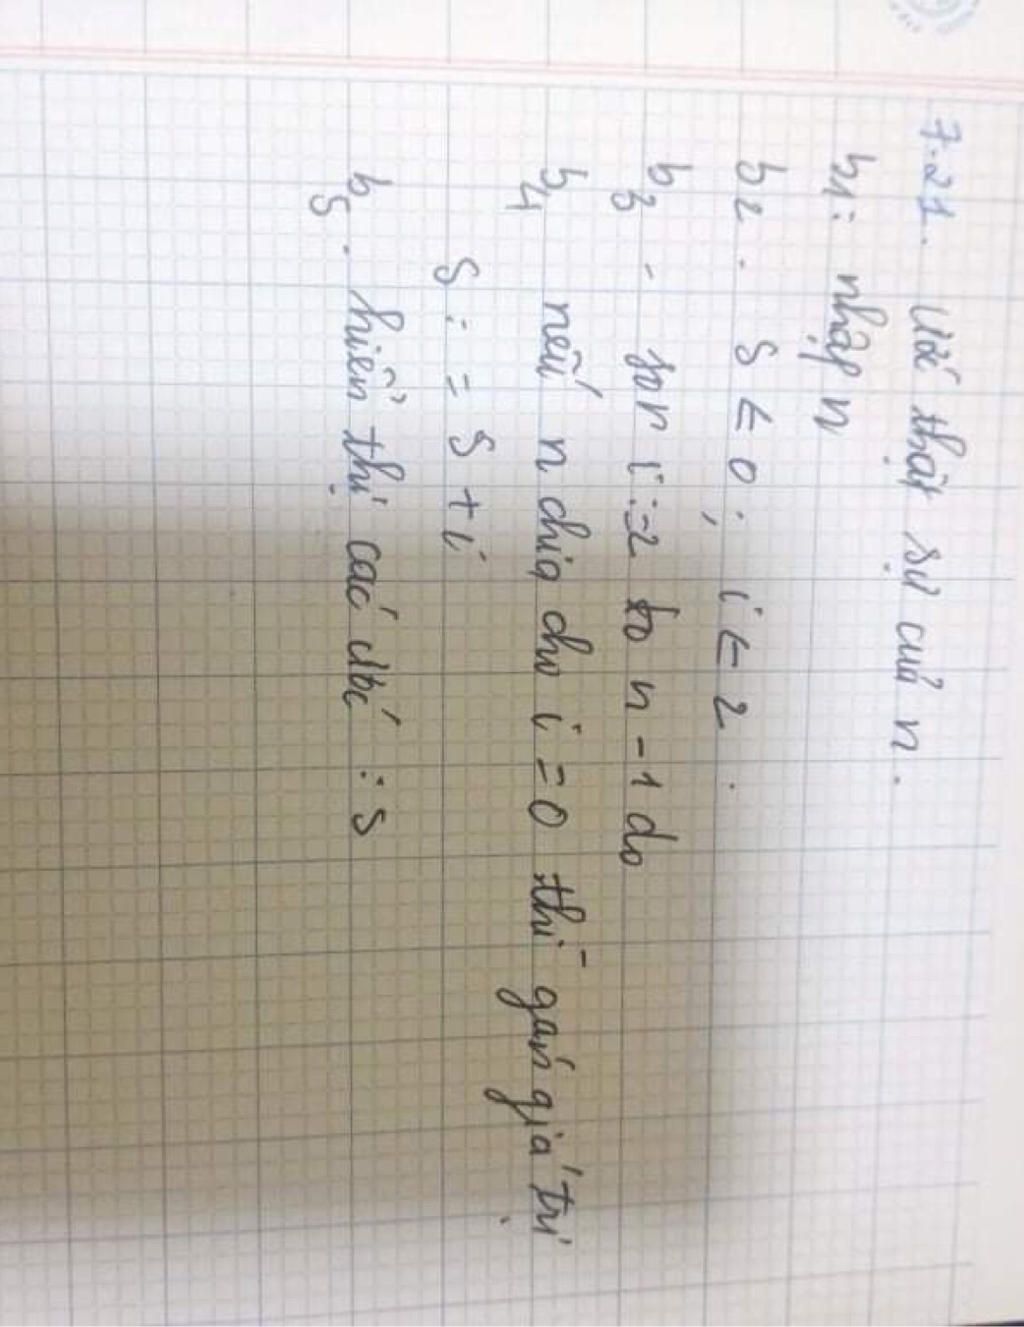 7.21. Ước thật sự của n.
b1: nhập n
b2. S ← 0; i ← 2.
b3 - for i:=2 to n-1 do
b4 nếu n chia cho i = 0 thì gán giá trị
S := S + i
b5. hiển thị các ước : S